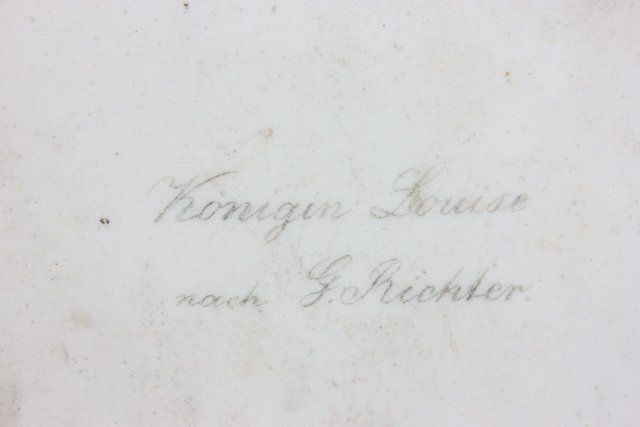 Königin Louise
nach G. Richter.